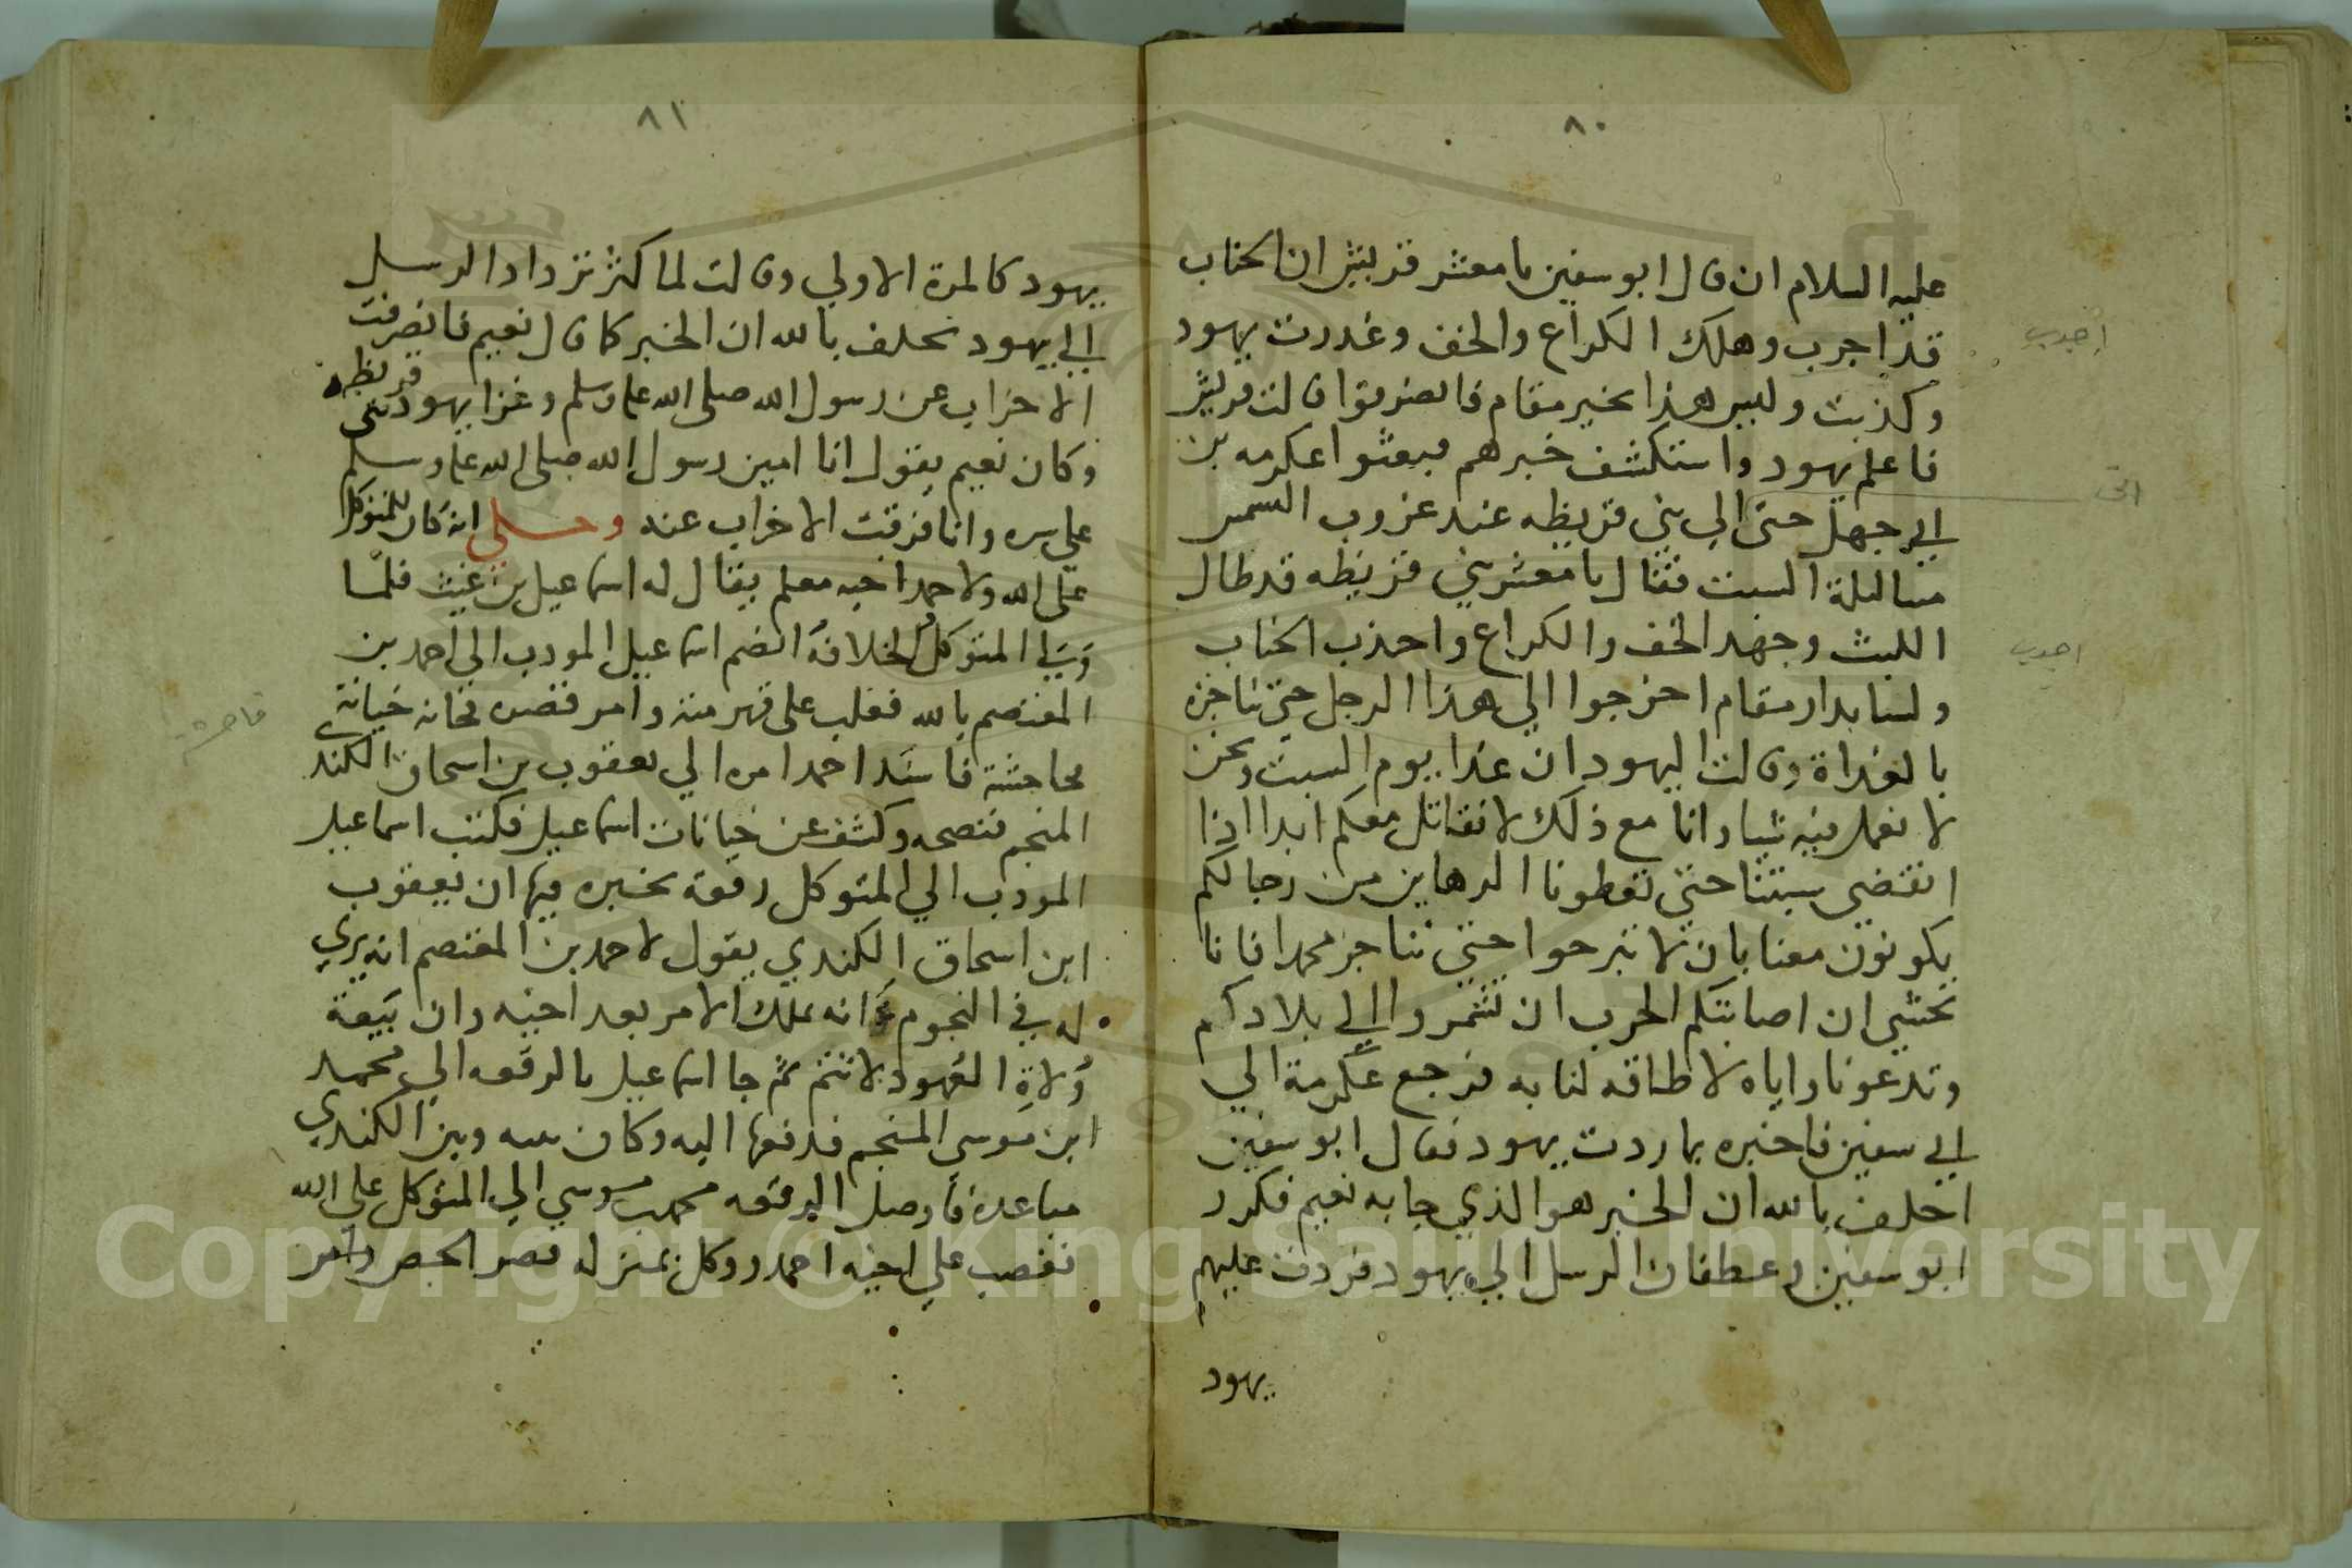 ٨٠
عليه السلام ان قال ابو سفين يا معشر قريش ان الجناب
قد اجرب وهلك الكراع والخف وغدرت يهود
وكذبت وليس هذا بخير مقام فانصرفوا قالت قريش
فاعلم يهود واستكشف خبرهم فبعثوا عكرمه بن
ابي جهل حتى الي بني قريظه عند غروب الشمس
مسا ليلة السبت فقال يا معشر بني قريظه قد طال
اللبث وجهد الخف والكراع واجذب الجناب
ولسنا بدار مقام اخرجوا الي هذا الرجل حتي نناجزه
بالغداة وقالت اليهود ان غدا يوم السبت ونحن
لا نعمل فيه شيا وانا مع ذلك لا نقاتل معكم ابدا اذا
انقضي سبتنا حتي تعطونا الرهاين من رجالكم
يكونون معنا بان لا تبرحوا حتي نناجز محمدا فانا
نخشي ان اصابتكم الحرب ان تشمروا الي بلادكم
وتدعونا واياه لا طاقه لنا به فرجع عكرمة الي
ابي سفين فاخبره بما ردت يهود فقال ابو سفين
احلف بالله ان الخبر هو الذي جا به نعيم فكرر
ابو سفين وغطفان الرسل الي يهود فردت عليهم
يهود
اجدب
اتى
اجدب
٨١
يهود كالمرة الاولي وقالت لما كثر تزداد الرسل
الي يهود نحلف بالله ان الخبر كما قال نعيم فانصرفت
الاحزاب عن رسول الله صلى الله عليه وسلم وغزا يهود بني قريظه
وكان نعيم يقول انا امين رسول الله صلى الله عليه وسلم
علي سره وانا فرقت الاحزاب عنه وحـــلي انه كان للمتوكل
على الله ولاحمد اخيه معلم يقال له اسماعيل بن غيث فلما
ولي المتوكل الخلافة انضم اسماعيل المودب الي احمد بن
المعتصم بالله فغلب على قهرمنة وامر قصره فخانه خيانة
فاحشة فاسند احمد امره الي يعقوب بن اسحاق الكندي
المنجم فنصحه وكشف عن خيانات اسماعيل فكتب اسماعيل
المودب الي المتوكل رقعة يخبره فيها ان يعقوب
ابن اسحاق الكندي يقول لاحمد بن المعتصم انه يري
له في النجوم انه يملك الامر بعد اخيه وان بيعة
ولاة العهود لا تتم ثم جا اسماعيل بالرقعه الي محمد
ابن موسي المنجم فدفعها اليه وكان بينه وبين الكندي
مباعدة فاوصل الرقعه محمد بن موسي الي المتوكل على الله
فغضب علي اخيه احمد ووكل بمنزله قصر الجص وامر